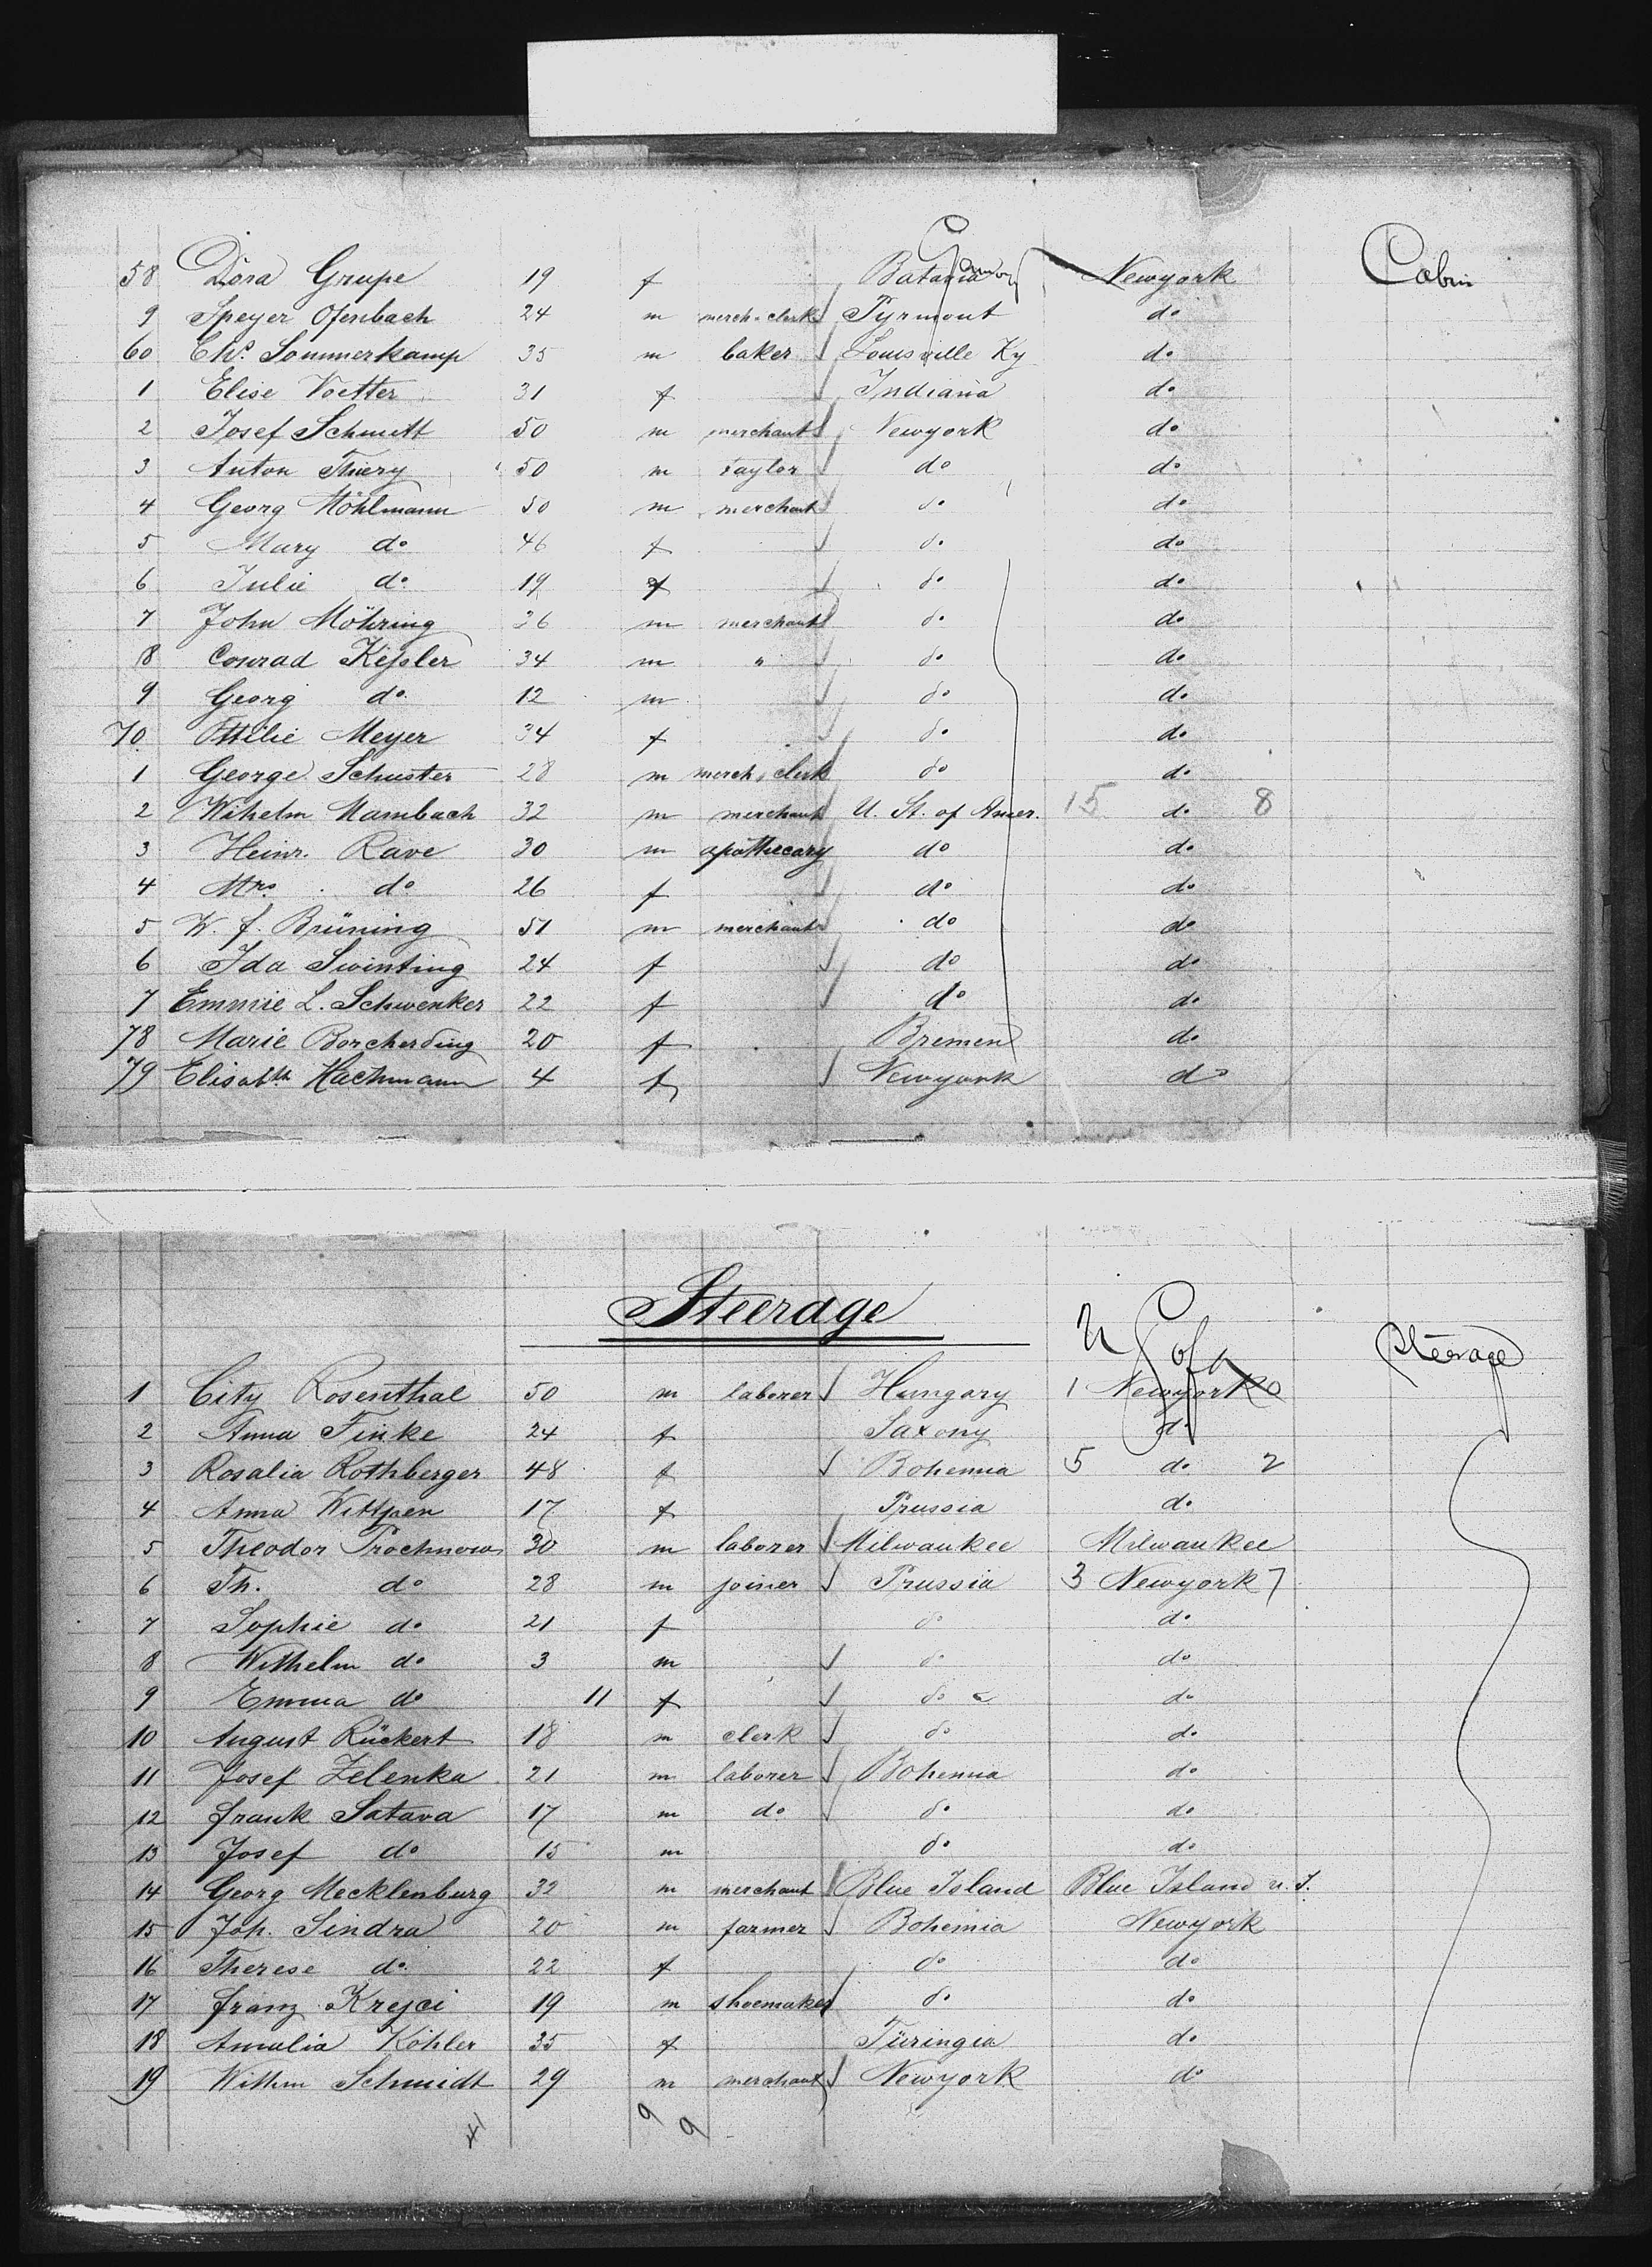 58 Dora Grupe 19 f Batavia Newyork Cabin
9 Speyer Ofenbach 24 m merch. clerk Pyrmont do
60 Chs. Sommerkamp 35 m baker Louisville Ky do
1 Elise Voetter 31 f Indiana do
2 Josef Schmitt 50 m merchant Newyork do
3 Anton Thiery 50 m taylor do do
4 Georg Möhlmann 50 m merchant do do
5 Mary do 46 f do do
6 Julie do 19 f do do
7 John Möhring 26 m merchant do do
8 Conrad Keßler 34 m " do do
9 Georg do 12 m do do
70 Ottilie Meyer 34 f do do
1 George Schuster 28 m merch. clerk do do
2 Wihelm Mambach 32 m merchant U. St. of Amer. 15 do 8
3 Heinr. Rave 30 m apothecary do do
4 Mrs. do 26 f do do
5 W. f. Brüning 51 m merchant do do
6 Ida Swinting 24 f do do
7 Emmie L. Schwenker 22 f do do
78 Marie Borcherding 20 f Bremen do
79 Elisabth Hachmann 4 f Newyork do
Steerage
U S of A Steerage
1 City Rosenthal 50 m laborer Hungary 1 Newyork 0
2 Anna Finke 24 f Saxony do
3 Rosalia Rothberger 48 f Bohemia 5 do 2
4 Anna Wittpen 17 f Prussia do
5 Theodor Prochnow 30 m laborer Milwaukee Milwaukee
6 Th. do 28 m joiner Prussia 3 Newyork 7
7 Sophie do 21 f do do
8 Wilhelm do 3 m do do
9 Emma do 11 f do do
10 August Rückert 18 m clerk do do
11 Josef Zelenka 21 m laborer Bohemia do
12 frank Satava 17 m do do do
13 Josef do 15 m do do
14 Georg Mecklenburg 32 m merchant Blue Island Blue Island
15 Joh. Sindra 20 m farmer Bohemia Newyork
16 Therese do 22 f do do
17 franz Krejci 19 m shoemaker do do
18 Amalia Köhler 35 f Türingia do
19 Wilhm Schmidt 29 m merchant Newyork do
41 9 9